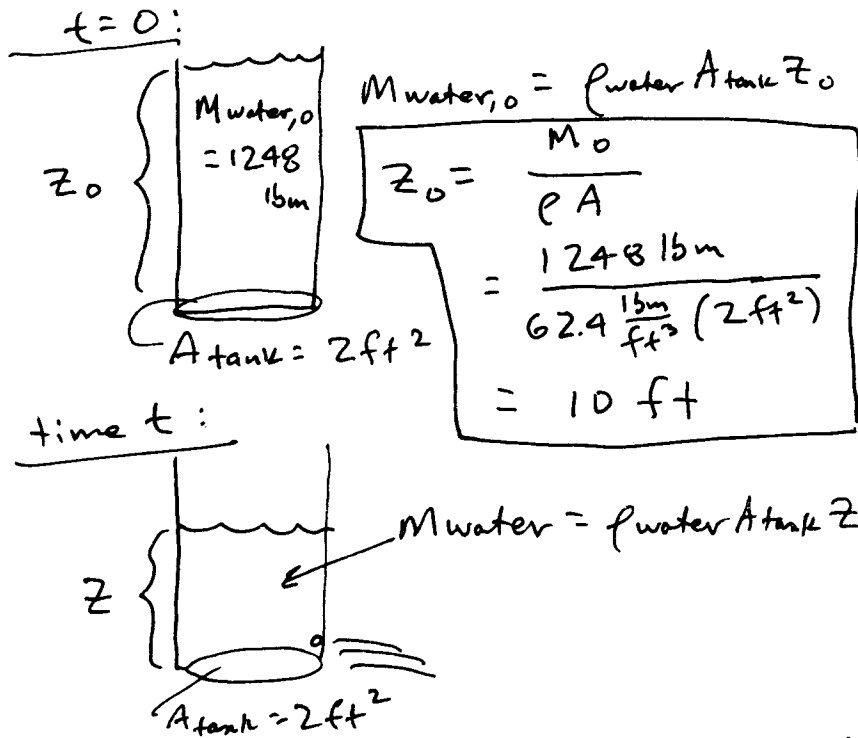 t = 0 :
Mwater,0 = 1248 lbm
Z0
Atank = 2ft²
Mwater,0 = ρwater Atank Z0
Z0 = M0 / ρA
= 1248 lbm / 62.4 lbm/ft³ (2ft²)
= 10 ft
time t :
Mwater = ρwater Atank Z
Z
Atank = 2ft²